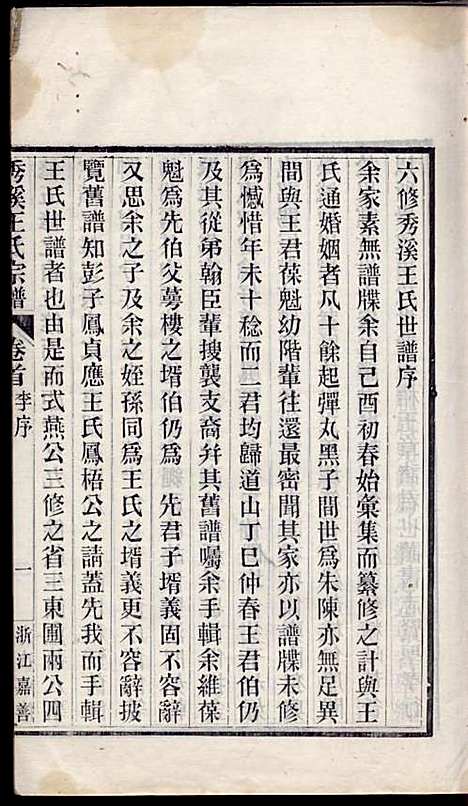 六修秀溪王氏世譜序
余家素無譜牒余自己酉初春始彙集而纂修之計與王
氏通婚姻者凡十餘起彈丸黑子間世爲朱陳亦無足異
間與王君葆魁幼階輩往還最密聞其家亦以譜牒未修
爲憾惜年未十稔而二君均歸道山丁巳仲春王君伯仍
及其從弟翰臣輩搜襲支裔幷其舊譜囑余手輯余維葆
魁爲先伯父蕚樓之壻伯仍爲 先君子壻義固不容辭
又思余之子及余之姪孫同爲王氏之壻義更不容辭披
覽舊譜知彭子鳳貞應王氏鳳梧公之請蓋先我而手輯
王氏世譜者也由是而式燕公三修之省三東圃兩公四
秀溪王氏宗譜 卷首 李序 一 浙江嘉善